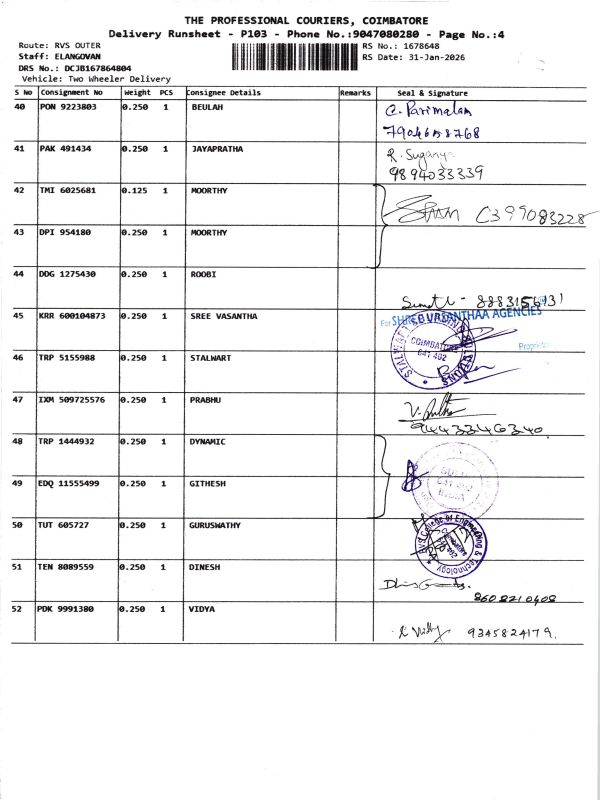 THE PROFESSIONAL COURIERS, COIMBATORE
Delivery Runsheet - P103 - Phone No.:9047080280 - Page No.:4
Route: RVS OUTER
Staff: ELANGOVAN
DRS No.: DCJB167864804
Vehicle: Two Wheeler Delivery
RS No.: 1678648
RS Date: 31-Jan-2026
S No Consignment No Weight PCS Consignee Details Remarks Seal & Signature
40 PON 9223803 0.250 1 BEULAH
C. Parimalam
7904658768
41 PAK 491434 0.250 1 JAYAPRATHA
R. Suganya
9894033339
42 TMI 6025681 0.125 1 MOORTHY
43 DPI 954180 0.250 1 MOORTHY
44 DDG 1275430 0.250 1 ROOBI
45 KRR 600104873 0.250 1 SREE VASANTHA
For SHREE VASANTHAA AGENCIES
Proprietor
COIMBATORE
641 402
46 TRP 5155988 0.250 1 STALWART
47 IXM 509725576 0.250 1 PRABHU
9443346340
48 TRP 1444932 0.250 1 DYNAMIC
49 EDQ 11555499 0.250 1 GITHESH
50 TUT 605727 0.250 1 GURUSWATHY
RVS College of Engineering & Technology
51 TEN 8089559 0.250 1 DINESH
8608210408
52 PDK 9991380 0.250 1 VIDYA
9345824179.